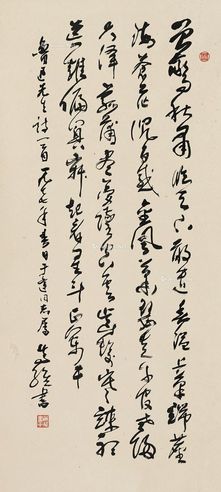 曾驚秋肅臨天下敢遣春溫上筆端塵
海蒼茫沈百感金風蕭瑟走千官老歸
大澤菰蒲盡夢墜空雲齒髮寒竦聽
荒雞偏闃寂起看星斗正闌干
魯迅先生詩一首 年春日于 同志屬
書